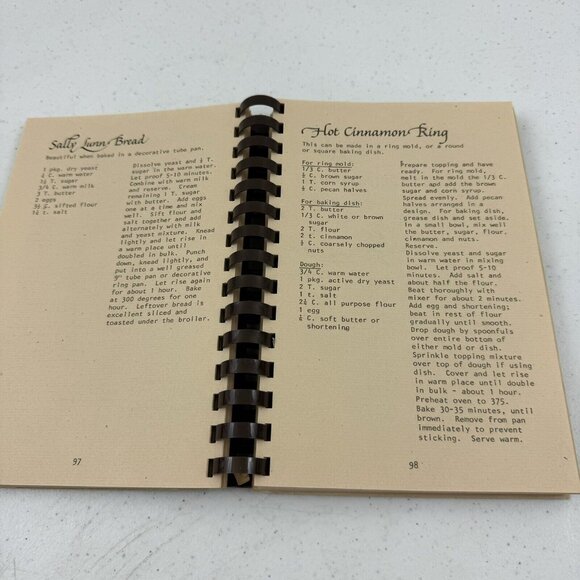 Sally Lunn Bread
Beautiful when baked in a decorative tube pan.
1 pkg. dry yeast
C. warm water
T. sugar
3/4 C. warm milk
T. butter
2 eggs
C. sifted flour
t. salt
Dissolve yeast and ½ T.
sugar in the warm water.
Let proof 5-10 minutes.
Combine with warm milk
and reserve. Cream
remaining 1 T. sugar
with butter. Add eggs
one at a time and mix
well. Sift flour and
salt together and add
alternately with milk
and yeast mixture. Knead
lightly and let rise in
a warm place until
doubled in bulk. Punch
down, knead lightly, and
put into a well greased
9" tube pan or decorative
ring pan. Let rise again
for about 1 hour. Bake
at 300 degrees for one
hour. Leftover bread is
excellent sliced and
toasted under the broiler.
97
Hot Cinnamon Ring
This can be made in a ring mold, or a round
or square baking dish.
For ring mold:
1/3 C. butter
C. brown sugar
1 T. corn syrup
C. pecan halves
For baking dish:
2 T. butter
1/3 C. white or brown
sugar
2 T. flour
2 t. cinnamon
C. coarsely chopped
nuts
Dough:
3/4 C. warm water
1 pkg. active dry yeast
2 T. sugar
1 t. salt
C. all purpose flour
1 egg
C. soft butter or
shortening
Prepare topping and have
ready. For ring mold,
melt in the mold the 1/3 C.
butter and add the brown
sugar and corn syrup.
Spread evenly. Add pecan
halves arranged in a
design. For baking dish,
grease dish and set aside.
In a small bowl, mix well
the butter, sugar, flour,
cinnamon and nuts.
Reserve.
Dissolve yeast and sugar
in warm water in mixing
bowl. Let proof 5-10
minutes. Add salt and
about half the flour.
Beat thoroughly with
mixer for about 2 minutes.
Add egg and shortening;
beat in rest of flour
gradually until smooth.
Drop dough by spoonfuls
over entire bottom of
either mold or dish.
Sprinkle topping mixture
over top of dough if using
dish. Cover and let rise
in warm place until double
in bulk - about 1 hour.
Preheat oven to 375.
Bake 30-35 minutes, until
brown. Remove from pan
immediately to prevent
sticking. Serve warm.
98